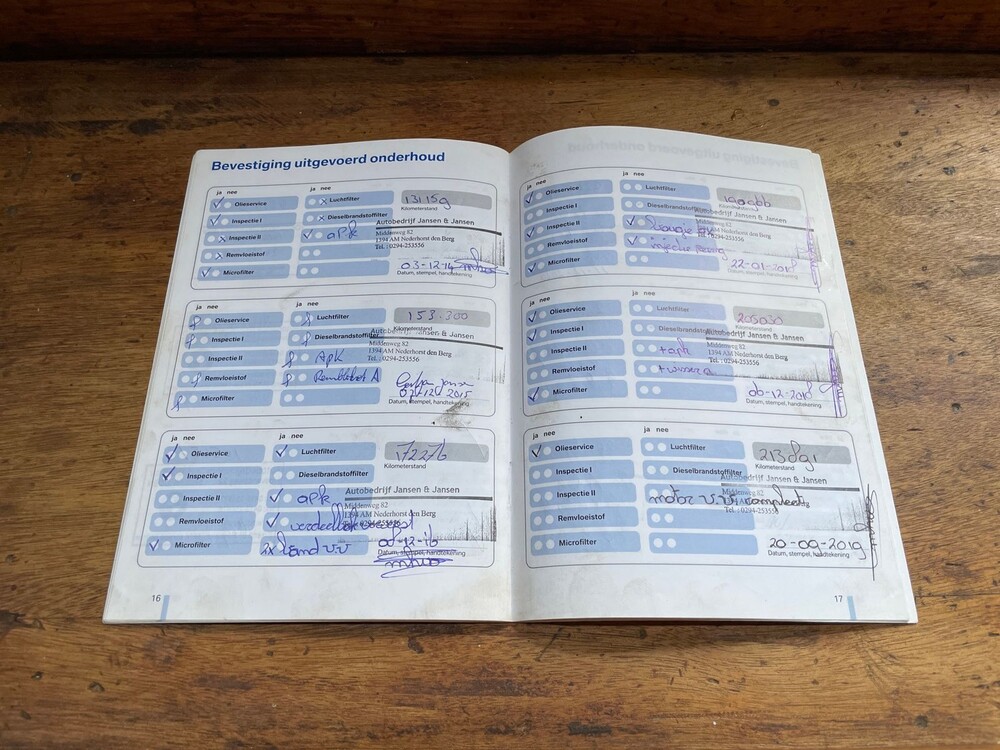 Bevestiging uitgevoerd onderhoud
ja nee ja nee
Olieservice Luchtfilter 131159
Kilometerstand
Inspectie I Dieselbrandstoffilter
Autobedrijf Jansen & Jansen
Inspectie II apk
Middenweg 82
1394 AM Nederhorst den Berg
Tel. : 0294-253556
Remvloeistof
Microfilter 03-12-14
Datum, stempel, handtekening
ja nee ja nee
Olieservice Luchtfilter 153.300
Kilometerstand
Inspectie I Dieselbrandstoffilter
Autobedrijf Jansen & Jansen
Inspectie II Apk
Middenweg 82
1394 AM Nederhorst den Berg
Tel. : 0294-253556
Remvloeistof A
Microfilter 2015
Datum, stempel, handtekening
ja nee ja nee
Olieservice Luchtfilter 172276
Kilometerstand
Inspectie I Dieselbrandstoffilter
Autobedrijf Jansen & Jansen
Inspectie II apk
Middenweg 82
1394 AM Nederhorst den Berg
Tel. : 0294-253556
Remvloeistof
Microfilter 2x band v.v
Datum, stempel, handtekening
16
ja nee ja nee
Olieservice Luchtfilter
Kilometerstand
Inspectie I Dieselbrandstoffilter
Autobedrijf Jansen & Jansen
Inspectie II
Middenweg 82
1394 AM Nederhorst den Berg
Tel. : 0294-253556
Remvloeistof
Microfilter 22-01-2018
Datum, stempel, handtekening
ja nee ja nee
Olieservice Luchtfilter 205030
Kilometerstand
Inspectie I Dieselbrandstoffilter
Autobedrijf Jansen & Jansen
Inspectie II + apk
Middenweg 82
1394 AM Nederhorst den Berg
Tel. : 0294-253556
Remvloeistof
Microfilter 06-12-2018
Datum, stempel, handtekening
ja nee ja nee
Olieservice Luchtfilter
Kilometerstand
Inspectie I Dieselbrandstoffilter
Autobedrijf Jansen & Jansen
Inspectie II motor v.v. compleet
Middenweg 82
1394 AM Nederhorst den Berg
Tel. : 0294-253556
Remvloeistof
Microfilter
Datum, stempel, handtekening
17